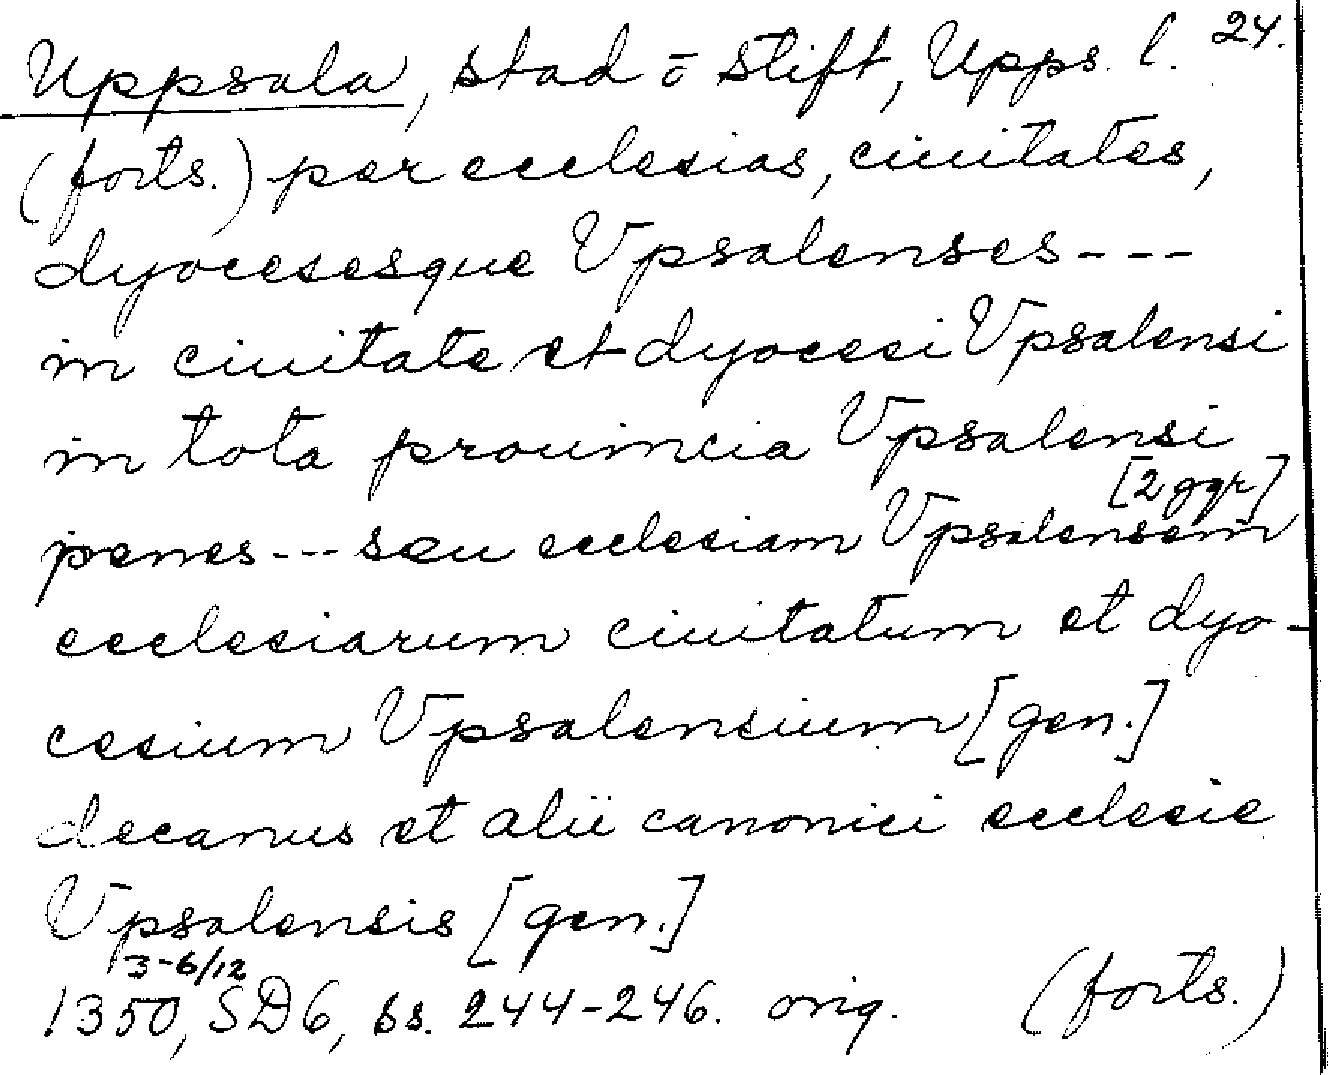 Uppsala, stad ō stift, Upps. l. 24.
(forts.) per ecclesias, ciuitates,
dyocesesque Vpsalenses---
in ciuitate et dyocesi Vpsalensi
in tota prouincia Vpsalensi
[2 ggr]
penes --- seu ecclesiam Vpsalensem
ecclesiarum ciuitatum et dyo-
cesium Vpsalensium [gen.]
decanus et alii canonici ecclesie
Vpsalensis [gen.]
3-6/12
1350, SD6, ss. 244-246. orig. (forts.)